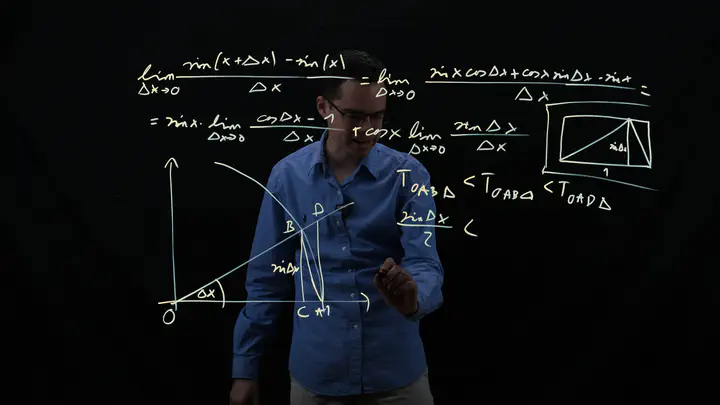 lim Δx→0 sin(x+Δx) - sin(x) / Δx = lim Δx→0 sin x cos Δx + cos x sin Δx - sin x / Δx =
= sin x · lim Δx→0 cos Δx - 1 / Δx + cos x lim Δx→0 sin Δx / Δx
sin Δx
1
T OABΔ < T OABΔ < T OADΔ
sin Δx / 2 <
D
B
sin Δx
Δx
O
C A 1